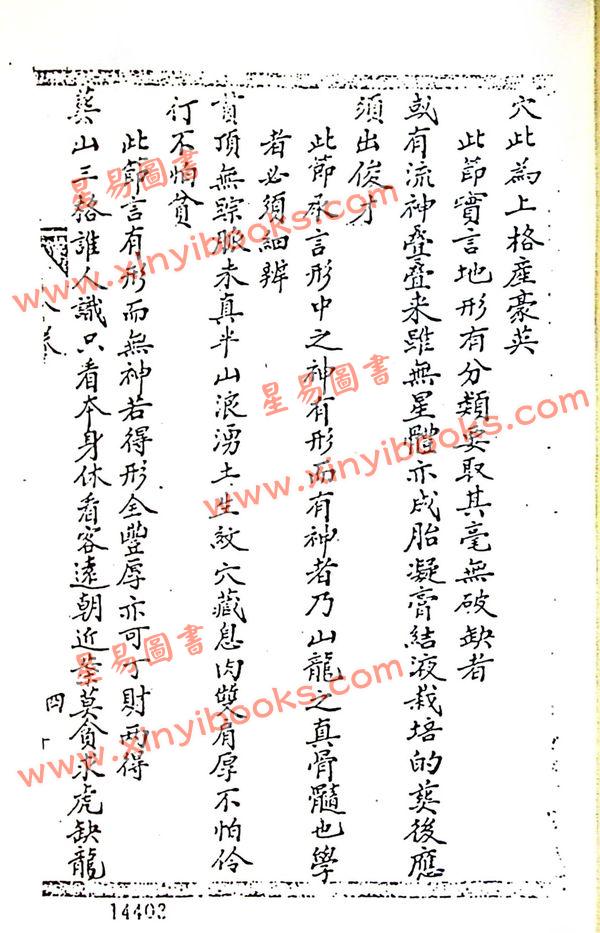 穴此為上格產豪英
此節實言地形有分類要取其毫無破缺者
或有流神疊疊来雖無星體亦成胎凝膏結液栽培的葬後應
須出俊才
此節承言形中之神有形而有神者乃山龍之真骨髓也學
者必須細辨
貧頂無踪脈未真半山浪湧土生紋穴藏息肉雙肩厚不怕伶
仃不怕貧
此節言有形而無神若得形全豐厚亦可丁財両得
葬山三格誰人識只看本身休看客遠朝近案莫貪求虎缺龍
卷
四十
星易圖書
www.xinyibooks.com
星易圖書
www.xinyibooks.com
星易圖書
www.xinyibooks.com
14403